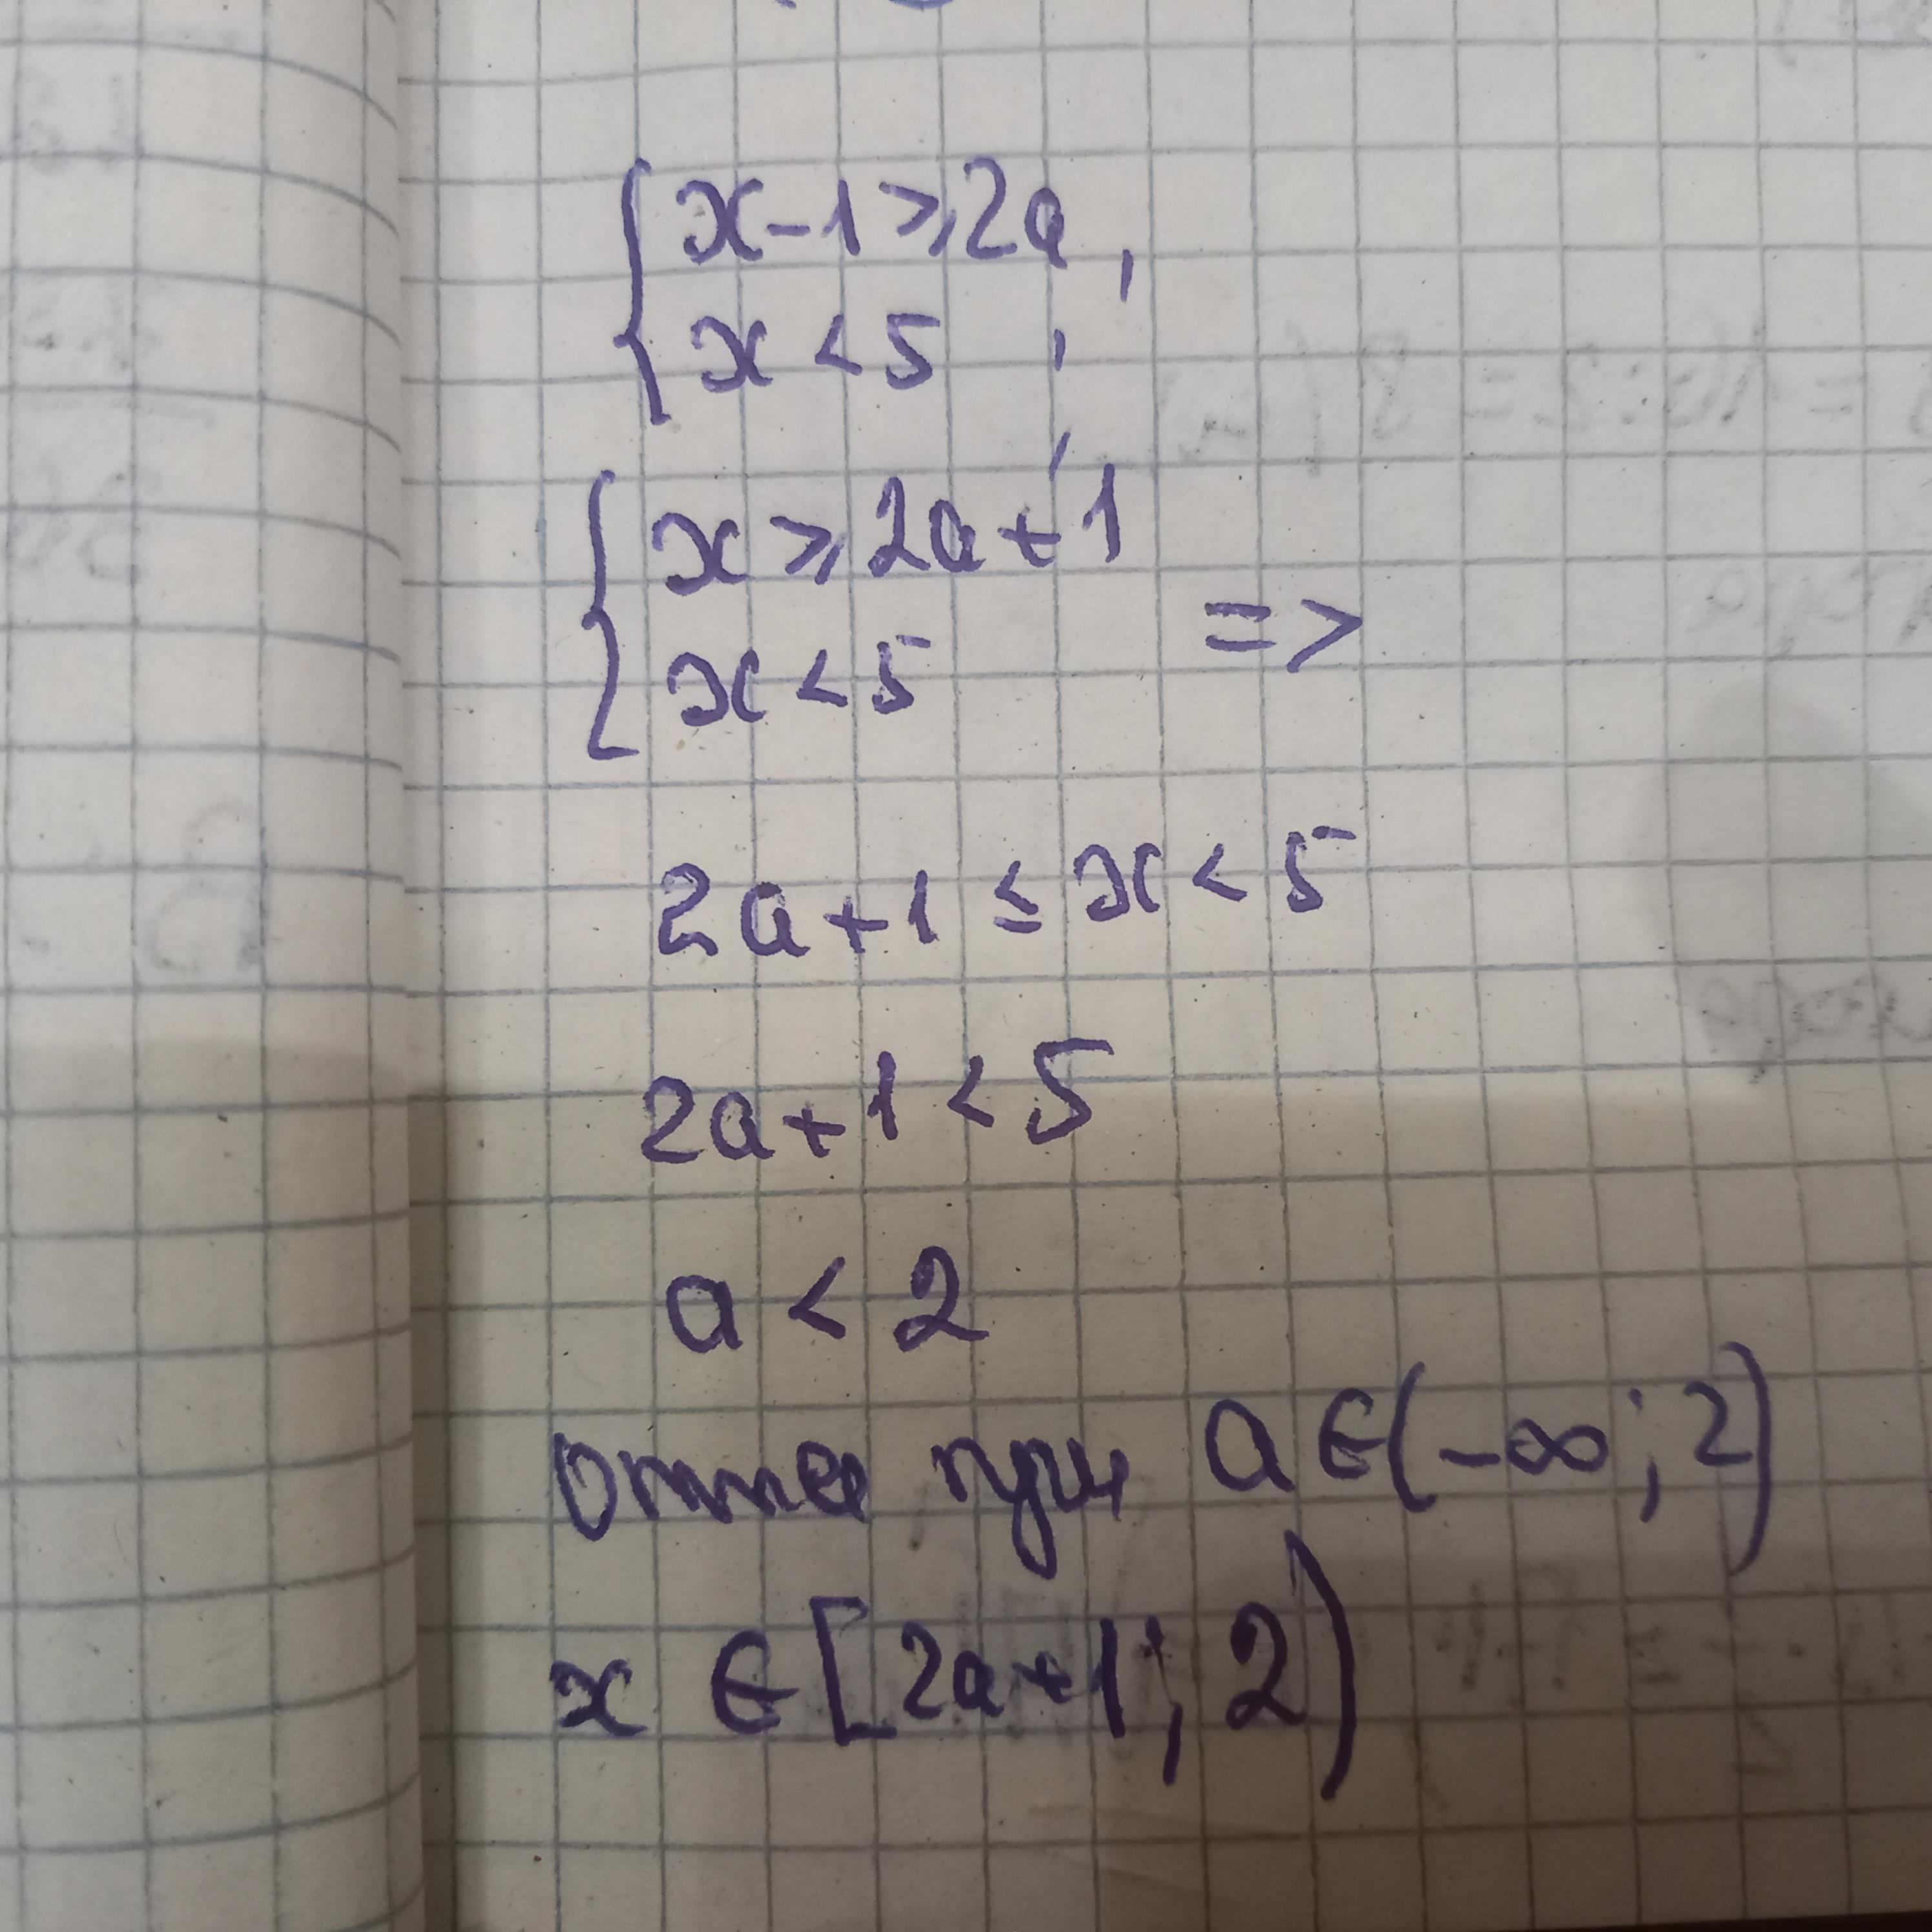 { x-1 ⩾ 2a,
x < 5 ,
{ x ⩾ 2a+1
x < 5 =>
2a+1 ≤ x < 5
2a+1 < 5
a < 2
при a ∈ (-∞; 2)
x ∈ [2a+1; 2)